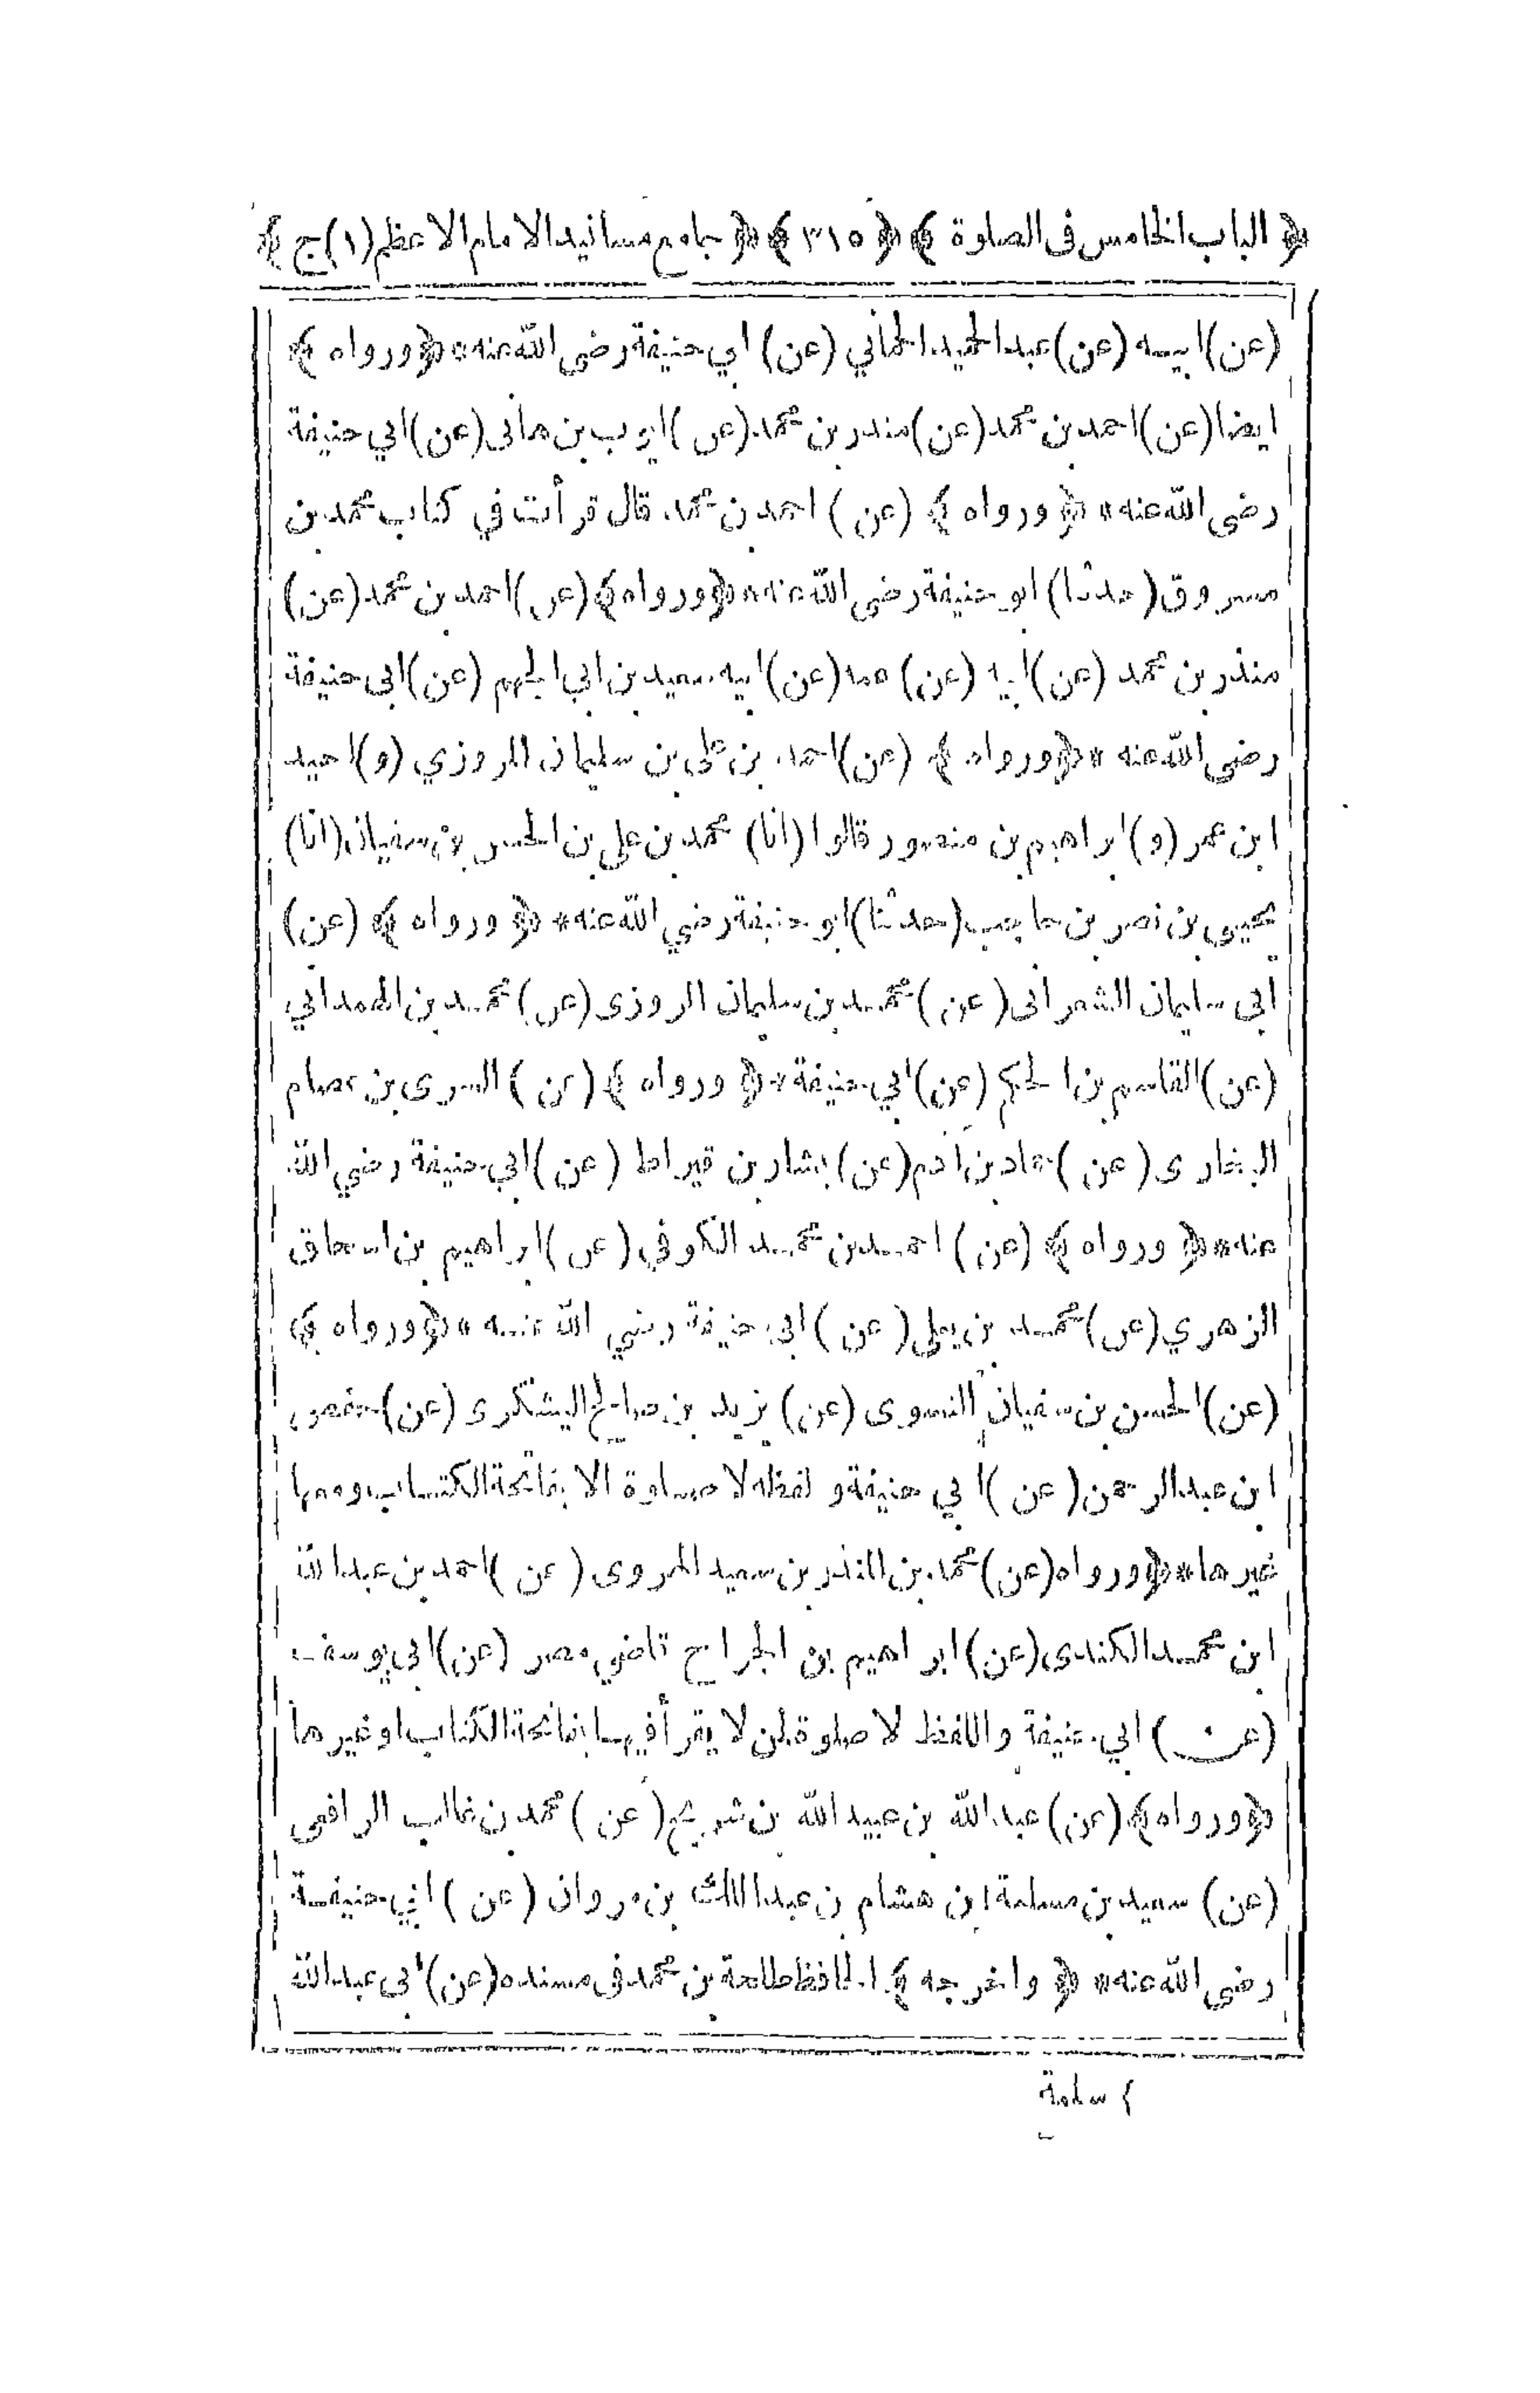 ﴿ الباب الخامس فى الصلوة ﴾ ﴿ ٣١٥ ﴾ ﴿ جامع مسانيد الامام الاعظم (١) ج ﴾
(عن) ابيه (عن) عبد الحميد الحماني (عن) ابي حنيفة رضى الله عنه * ﴿ ورواه ﴾
ايضا (عن) احمد بن محمد (عن) منذر بن محمد (عن) ايوب بن هانى (عن) ابي حنيفة
رضى الله عنه * ﴿ ورواه ﴾ (عن) احمد بن محمد قال قرأت في كتاب محمد بن
مسروق (حدثنا) ابو حنيفة رضى الله عنه * ﴿ ورواه ﴾ (عن) احمد بن محمد (عن)
منذر بن محمد (عن) ابيه (عن) عمه (عن) ابيه سعيد بن ابي الجهم (عن) ابى حنيفة
رضى الله عنه * ﴿ ورواه ﴾ (عن) احمد بن على بن سليمان المروزي (و) احيد
ابن عمر (و) ابراهيم بن منصور قالوا (انا) محمد بن علي بن الحسن بن سفيان (انا)
يحيى بن نصر بن حاجب (حدثنا) ابو حنيفة رضي الله عنه * ﴿ ورواه ﴾ (عن)
ابى سليمان الشعرانى (عن) محمد بن سليمان المروزى (عن) محمد بن الهمداني
(عن) القاسم بن الحكم (عن) ابي حنيفة * ﴿ ورواه ﴾ (عن) السرى بن عصام
البخارى (عن) حماد بن ادم (عن) بشار بن قيراط (عن) ابي حنيفة رضي الله
عنه * ﴿ ورواه ﴾ (عن) احمد بن محمد الكوفي (عن) ابراهيم بن اسحاق
الزهري (عن) محمد بن يعلى (عن) ابي حنيفة رضي الله عنه * ﴿ ورواه ﴾
(عن) الحسن بن سفيان النسوى (عن) يزيد بن صالح اليشكرى (عن) حفص
ابن عبد الرحمن (عن) ابي حنيفة و لفظه لا صلوة الا بفاتحة الكتاب ومعها
غيرها * ﴿ ورواه (عن) محمد بن المنذر بن سعيد الهروى (عن) احمد بن عبد الله
ابن محمد الكندى (عن) ابراهيم بن الجراح قاضي مصر (عن) ابى يوسف
(عن) ابي حنيفة واللفظ لا صلوة لمن لا يقرأ فيها بفاتحة الكتاب او غيرها
﴿ ورواه ﴾ (عن) عبد الله بن عبيد الله بن شريح (عن) محمد بن غالب الرافعى
(عن) سعيد بن مسلمة ابن هشام بن عبد الملك بن مروان (عن) ابي حنيفة
رضي الله عنه * ﴿ واخرجه ﴾ الحافظ طلحة بن محمد فى مسنده (عن) ابى عبد الله
٢ سلمة